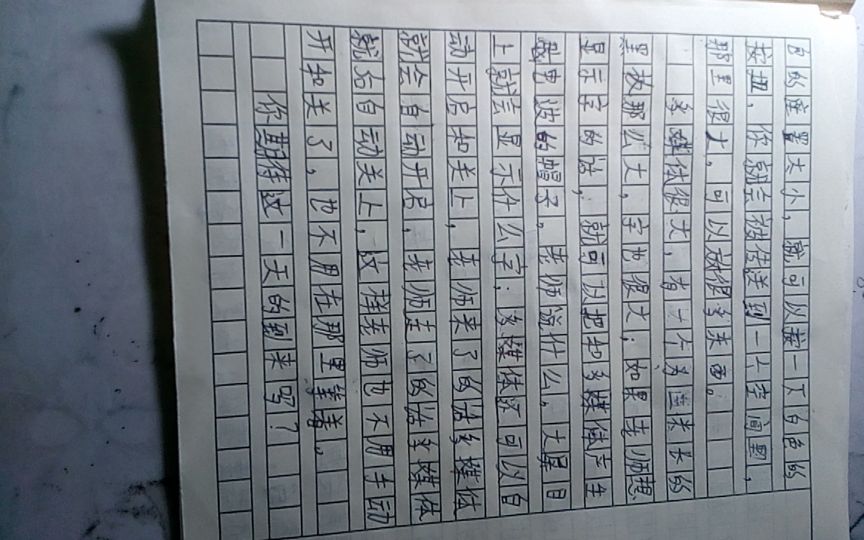 它的座置大小，就可以按一下白色的
按扭，你就会被传送到一个空间里，
那里很大，可以放很多东西。
多媒体很大，有一个多里米长的
黑板那么大，字也很大；如果老师想
显示字的话，就可以把和多媒体产生
感电波的帽子，老师说什么，大屏目
上就会显示什么字；多媒体还可以自
动开启和关上，老师来了的话多媒体
就会自动开启，老师走了的话多媒体
就后自动关上，这样老师也不用手动
开和关了，也不用在那里等着。
你期待这一天的到来吗？